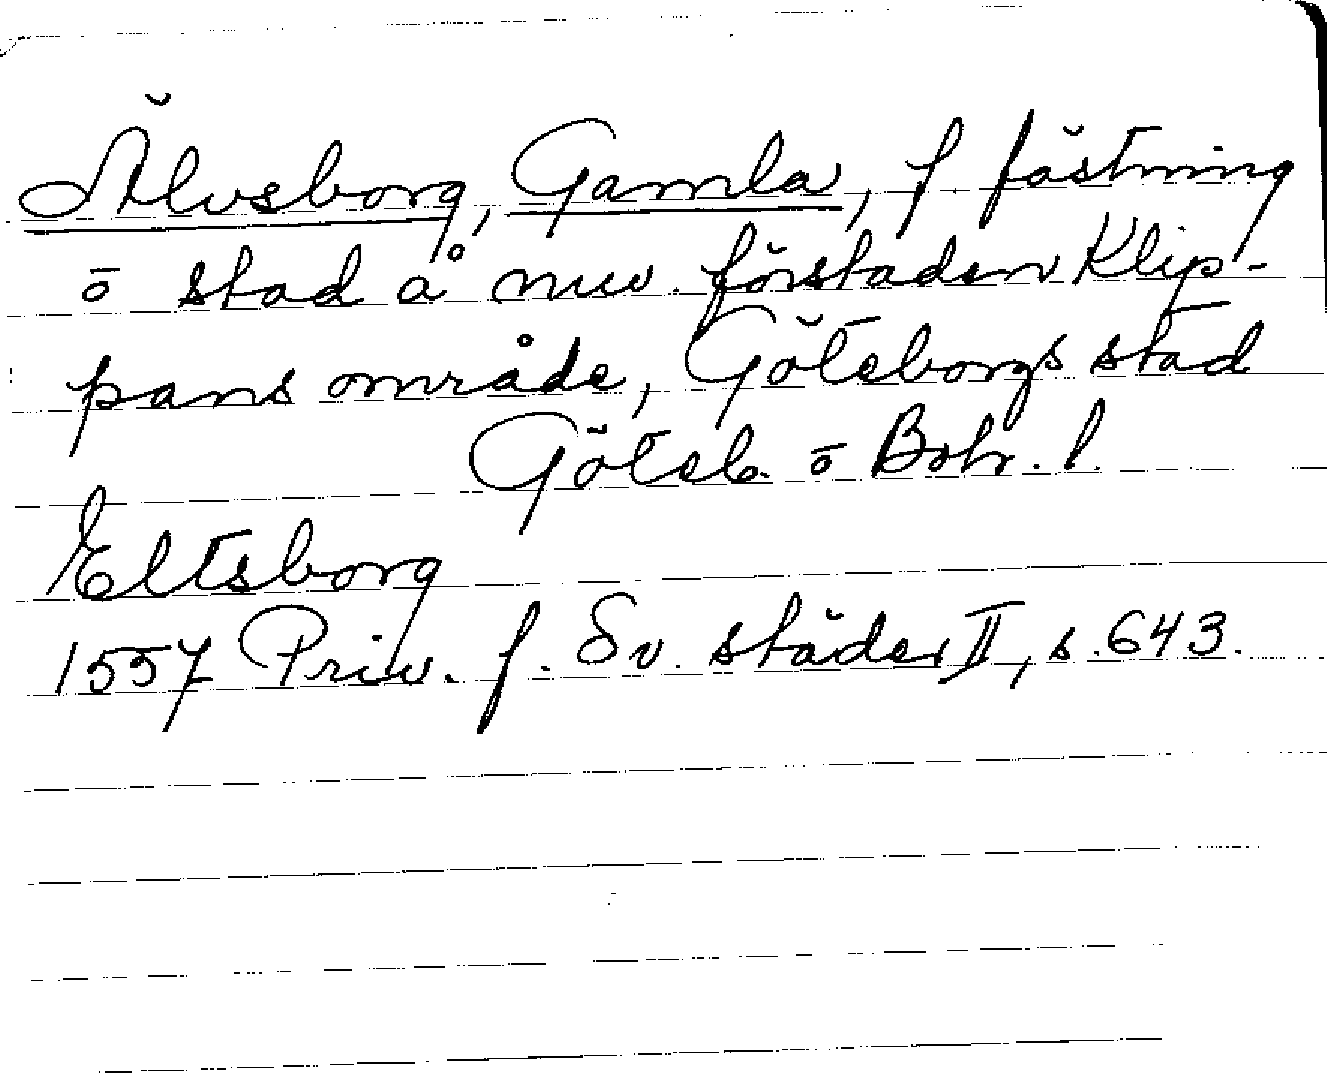 Älvsborg, Gamla, f. fästning
o stad å nuv. förstaden Klip-
pans område, Göteborgs stad
Göteb. o Boh. l.
Eltsborg
1557 Priv. f. Sv. städer II, s. 643.